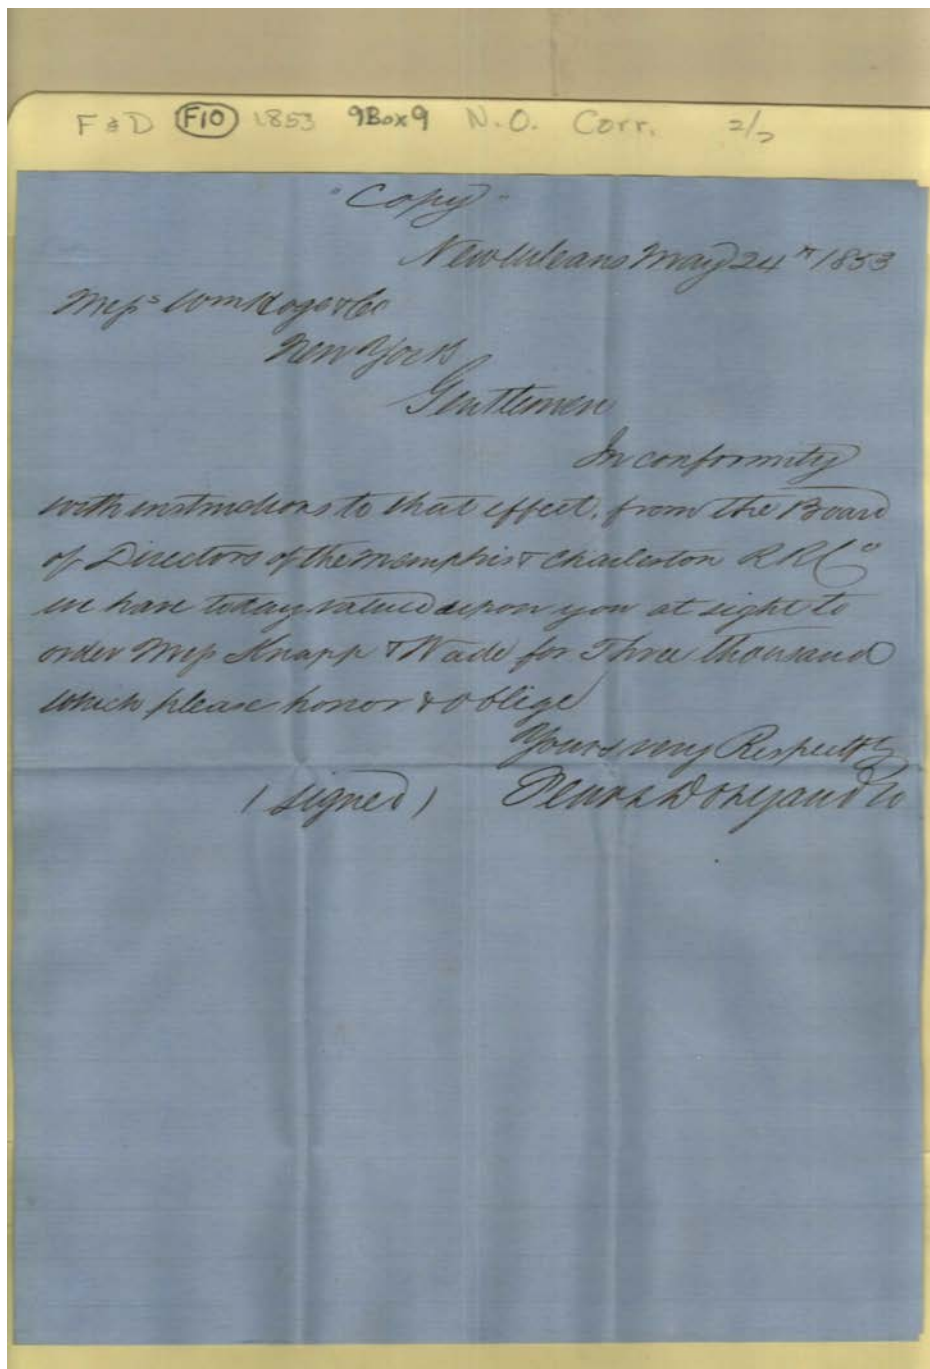 F & D F10 1853 9Box9 N.O. Corr. 2/2
"Copy"
New Orleans May 24th 1853
Messs Wm Hoge & Co
New York
Gentlemen
In conformity
with instructions to that effect, from the Board
of Directors of the Memphis & Charleston RRCo
we have today valued upon you at sight to
order Mess Knapp & Wade for Three thousand
which please honor & oblige
Yours very Respectfy
(signed)